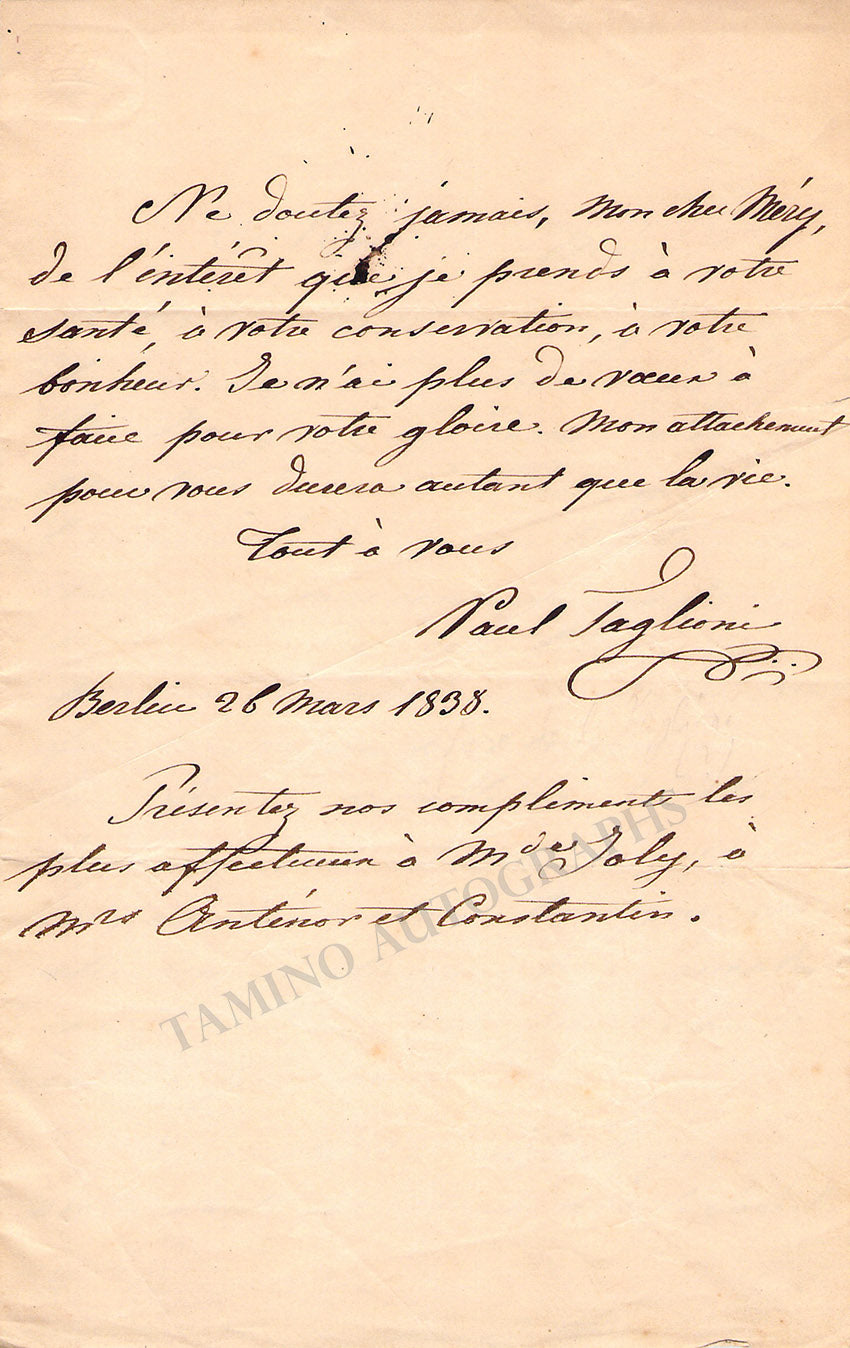 Ne doutez jamais, mon cher Méry,
de l'intérêt que je prends à votre
santé, à votre conservation, à votre
bonheur. Je n'ai plus de vœux à
faire pour votre gloire. Mon attachement
pour vous durera autant que la vie.
Tout à vous
Paul Taglioni
Berlin 26 Mars 1838.
Présentez nos compliments les
plus affectueux à Mde Joly, à
Mrs Anténor et Constantin.
TAMINO AUTOGRAPHS